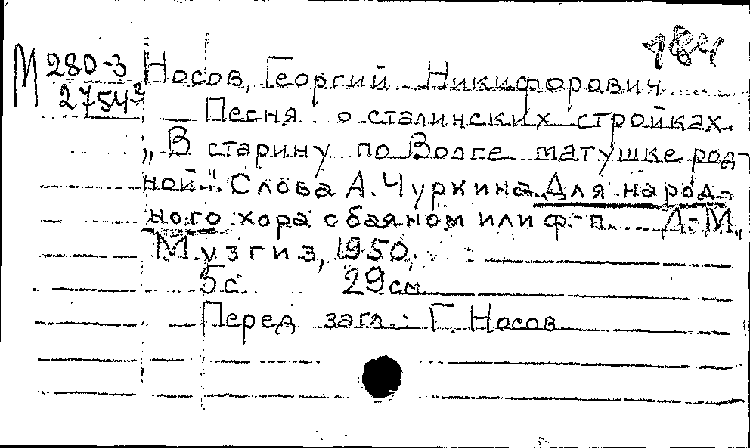 184
М 280-3 Носов, Георгий Никифорович
2754³ Песня о сталинских стройках.
„В старину по Волге матушке род-
ной". Слова А. Чуркина. Для народ-
ного хора с баяном или ф.-п. Л.-М.,
Музгиз, 1950.
5 с. 29 см
Перед загл.: Г. Носов